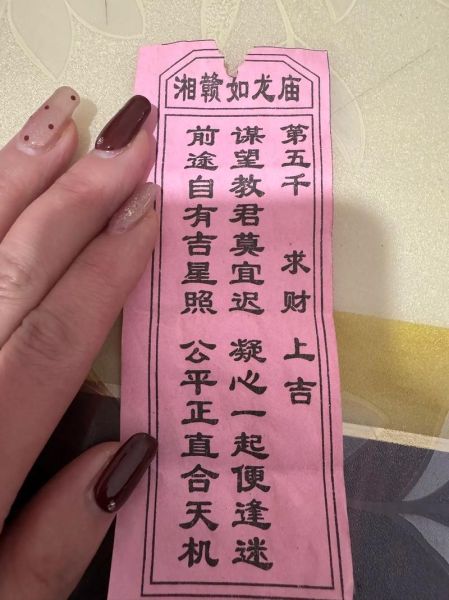 湘赣如龙庙
第五千 求财 上吉
谋望教君莫宜迟 凝心一起便逢迷
前途自有吉星照 公平正直合天机